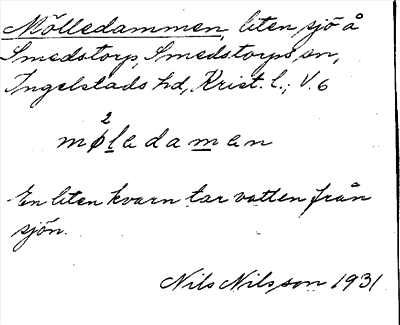 Mölledammen, liten sjö å
Smedstorp, Smedstorps sn,
Ingelstads hd, Krist. l.; V. 6
2
møladaman
En liten kvarn tar vatten från
sjön.
Nils Nilsson 1931